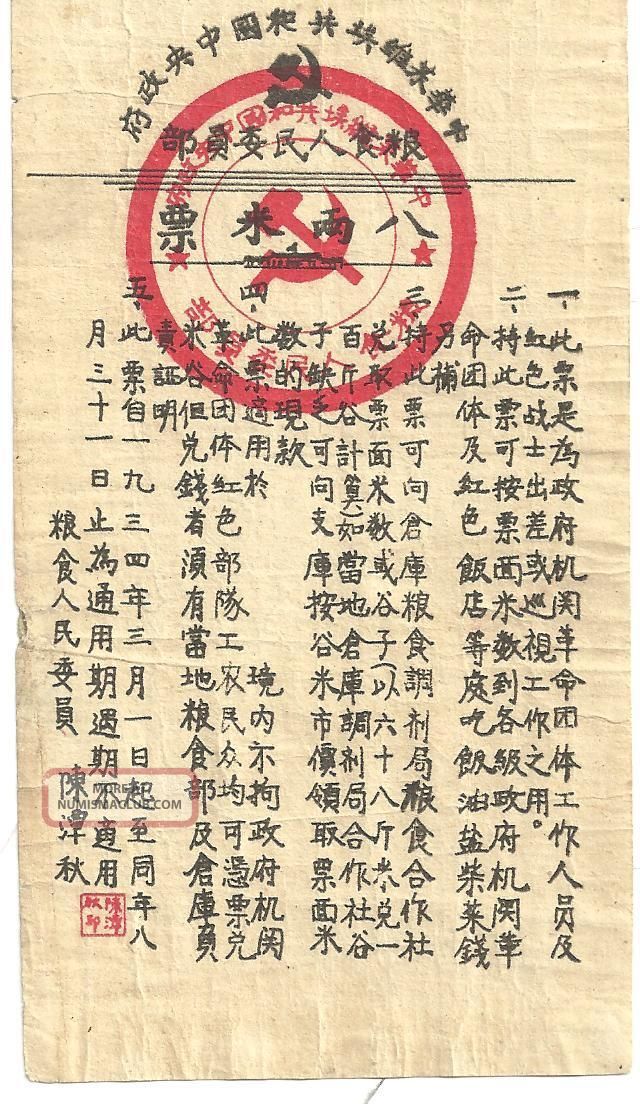 中華苏維埃共和國中央政府
粮食人民委員部
八兩米票
中華苏維埃共和國中央政府
粮食人民委員部
一、此票是為政府机関革命团体工作人員及
紅色战士出差或巡視工作之用。
二、持此票可按票面米数到各級政府机関革
命团体及紅色飯店等處吃飯油盐柴菜錢
另補
三、持此票可向倉庫粮食調剂局粮食合作社
兑取票面米数或谷子(以六十八斤米兑一
百斤谷計算)如當地倉庫調剂局合作社谷
子缺乏可向支庫按谷米市價領取票面米
数的現款
四、此票適用於 境内不拘政府机関
革命团体紅色部隊工农民众均可憑票兑
米谷但兑錢者須有當地粮食部及倉庫負
責証明
五、此票自一九三四年三月一日起至同年八
月三十一日止為通用期過期不適用
粮食人民委員 陳潭秋
陳潭秋印
MORE AT
NUMISMACLUB.COM